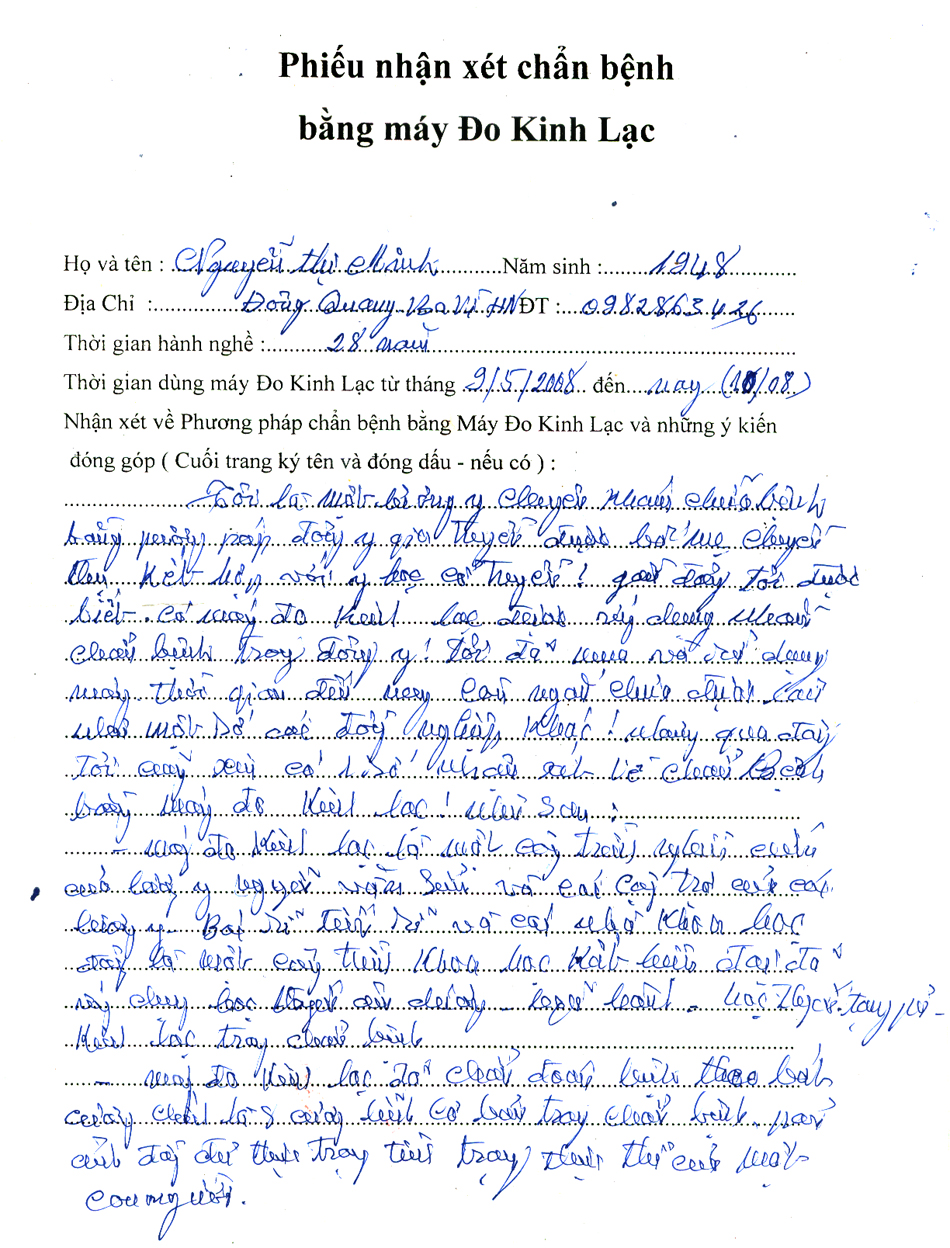 Phiếu nhận xét chẩn bệnh
bằng máy Đo Kinh Lạc
Họ và tên : Nguyễn thị Minh Năm sinh : 1948
Địa Chỉ : Đồng Quang Ba Vì HN ĐT : 0982863426
Thời gian hành nghề : 28 năm
Thời gian dùng máy Đo Kinh Lạc từ tháng 9/5/2008 đến nay (10/08)
Nhận xét về Phương pháp chẩn bệnh bằng Máy Đo Kinh Lạc và những ý kiến
đóng góp ( Cuối trang ký tên và đóng dấu - nếu có ) :
Tôi là một lương y chuyên khám chữa bệnh
bằng đông y gia truyền được bố mẹ
kết hợp với y học cổ truyền ! gần đây tôi được
biết có máy đo kinh lạc được ứng dụng khám
chẩn bệnh trong đông y ! Tôi đã mua và sử dụng
máy thời gian đến nay còn ngắn chưa được lâu
như một số các đồng nghiệp khác ! nhưng qua đây
Tôi cũng xin có 1 số nhận xét về chẩn Bệnh
bằng máy đo kinh lạc ! như sau :
- máy đo kinh lạc là một công trình nghiên cứu
của lương y nguyễn văn và các cộng trợ của các
lương y - Bác sĩ tiến sĩ và các nhà khoa học
đây là một công trình khoa học hiện đại đã
ứng dụng học thuyết âm dương - - học Tạng phủ -
kinh lạc trong chẩn bệnh
- máy đo kinh lạc đã chẩn đoán bệnh theo bát
cương là 8 cương lĩnh cơ bản trong chẩn bệnh. phản
ánh đầy đủ thực trạng tình trạng thực thể của một
con người.